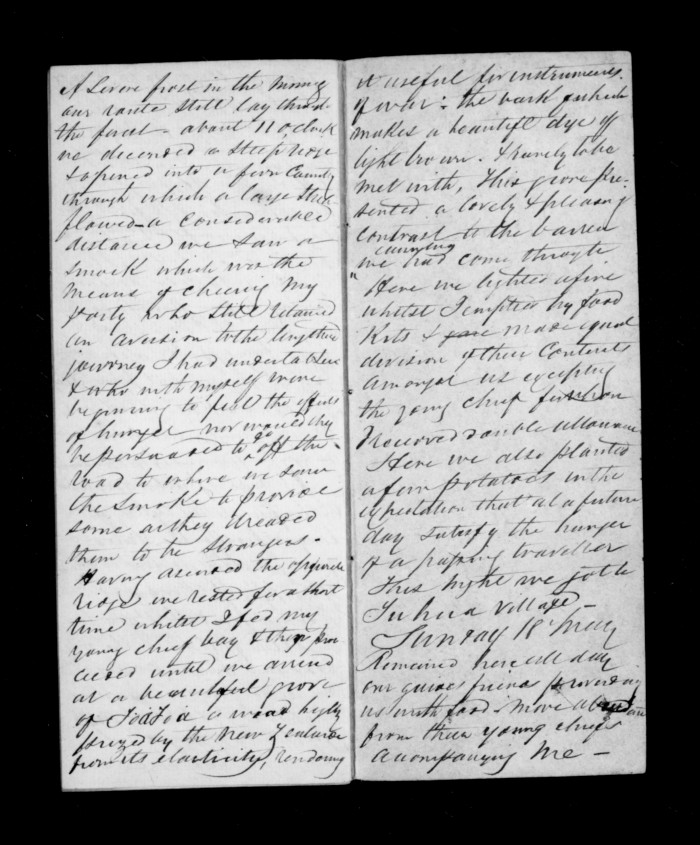 A Severe frost in the morning
our route still lay through
the forest - about 11 o,clock
we decended a steep ridge
& opened into a fern Country
through which a large
flowed - a considerable
distance we saw a
Smock which was the
means of cheering my
Party who still retained
an aversion to the lengthened
journey I had undertaken
& who with myself were
beginning to feel the effects
of hunger nor would they
be persuaded to go off the
road to where we saw
the smoke to provide
some as they dreaded
them to be strangers -
Having ascended the opposite
ridge we rested for a short
time whilst I fed my
young chief boy & then pro
ceeded until we arrived
at a beautiful grove
of a wood highly
prized by the New Zealander
from its elasticity, rendering
it useful for instruments
of war : the bark of which
makes a beautiful dye of
light brown. & rarely to be
met with, This grove pre-
sented a lovely & pleasing
contrast to the barren
country
we had come through
Here we lighted a fire
whilst I emptied my food
Kits & made equal
division of their Contents
amongst us excepting
the young chief
received double allowance
Here we also planted
a few potatoes in the
expectation that at a future
day satisfy the hunger
of a passing traveller
This night we got to
village -
Sunday 18 May
Remained here all day
our guides friend providing
us with food
from their young chiefs
accompanying me -